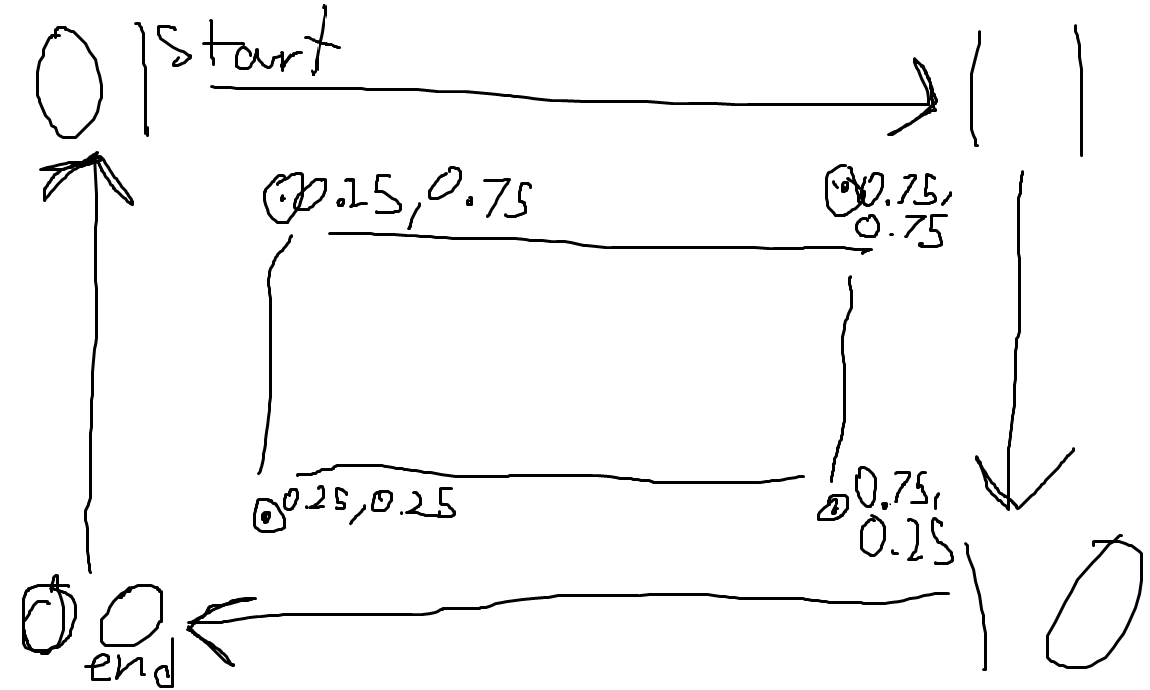 01 start
11
0.25,0.75
0.75,
0.75
0.25,0.25
0.75,
0.25
00
end
10